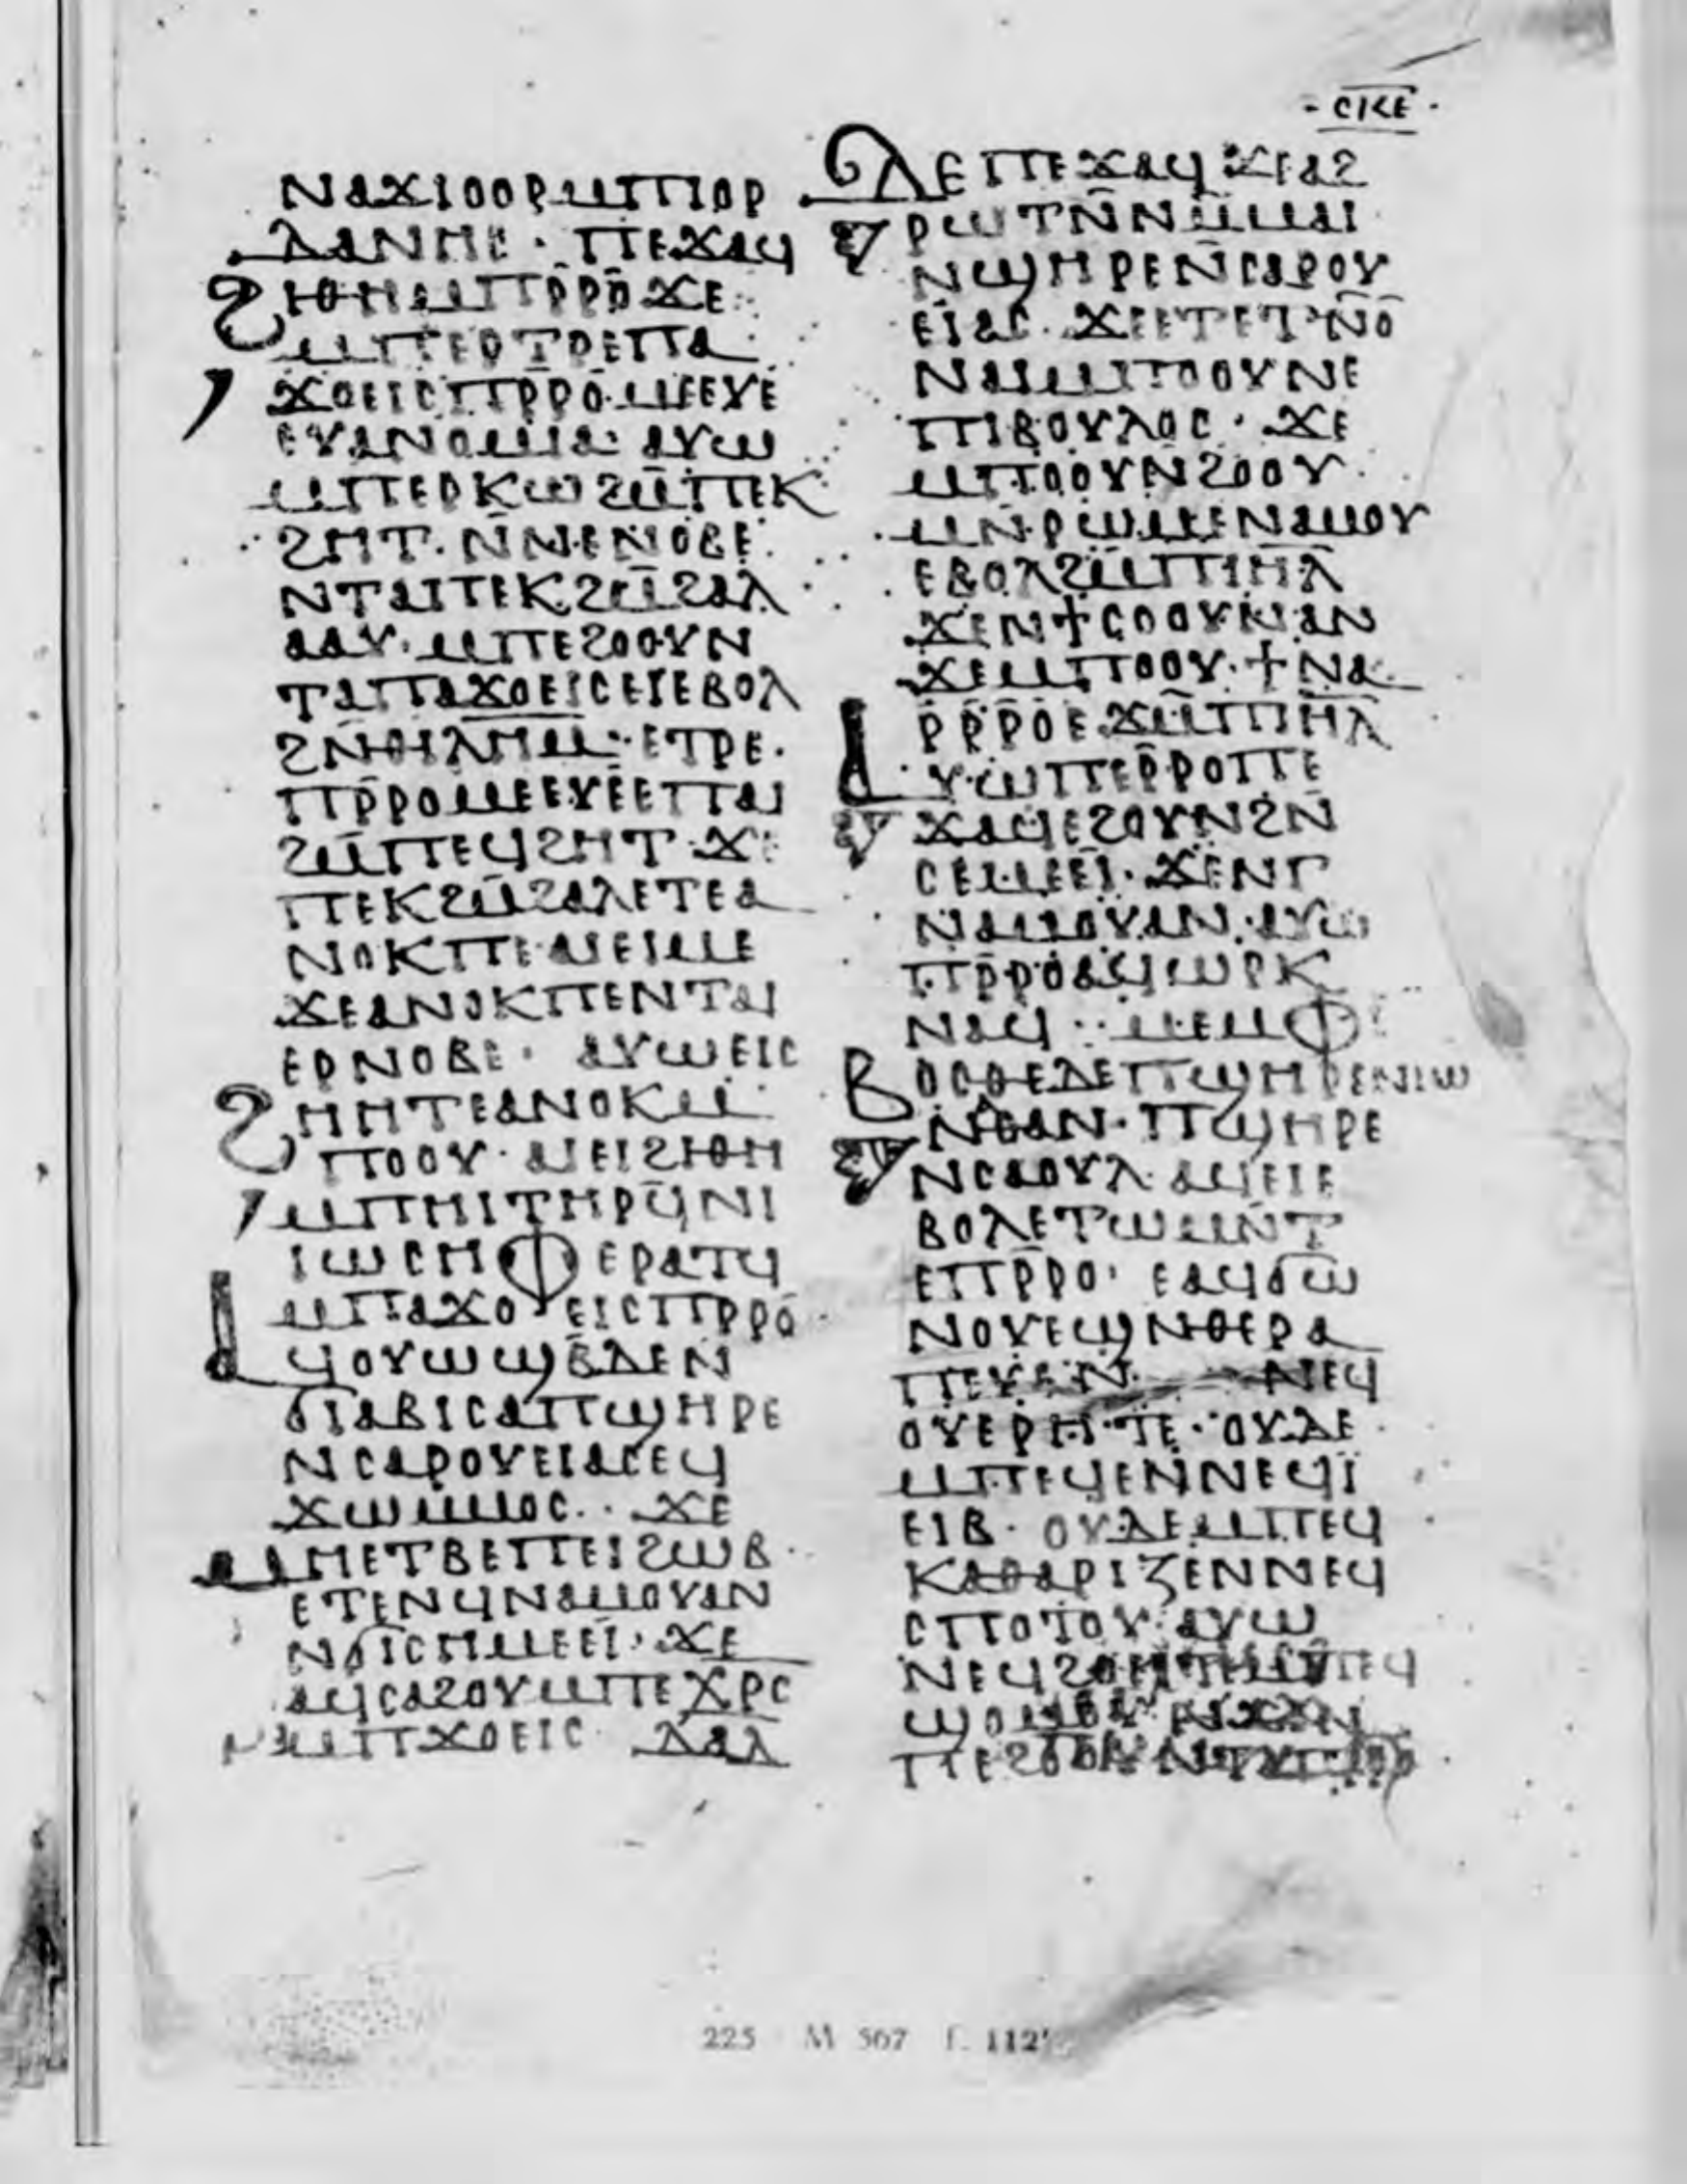 - ⲥⲕⲉ -
ⲛⲁϫⲓⲟⲟⲣⲙⲡⲓⲟⲣ
ⲇⲁⲛⲏⲥ · ⲡⲉϫⲁϥ
ϩⲓⲑⲏⲙⲡⲣ̄ⲣⲟ̄ϫⲉ
ⲙⲡⲉⲣⲧⲣⲉⲡⲁ
ϫⲟⲉⲓⲥⲡⲣ̄ⲣⲟ̄ⲙⲉⲉⲩⲉ
ⲉⲩⲁⲛⲟⲙⲓⲁ· ⲁⲩⲱ
ⲙⲡⲉⲣⲕⲱϩⲙ̄ⲡⲉⲕ
ϩⲏⲧ · ⲛ̄ⲛⲉⲛⲟⲃⲉ
ⲛⲧⲁⲡⲉⲕϩⲙ̄ϩⲁⲗ
ⲁⲁⲩ· ⲙⲡⲉϩⲟⲟⲩⲛ
ⲧⲁⲡⲁϫⲟⲉⲓⲥⲉⲓⲉⲃⲟⲗ
ϩⲛ̄ⲑⲓⲗⲏⲙ · ⲉⲧⲣⲉ·
ⲡⲣ̄ⲣⲟⲙⲉⲉⲩⲉⲉⲡⲁⲓ
ϩⲙ̄ⲡⲉϥϩⲏⲧ · ϫⲉ
ⲡⲉⲕϩⲙ̄ϩⲁⲗⲉⲧⲉⲁ
ⲛⲟⲕⲡⲉ ⲁⲓⲉⲓⲙⲉ
ϫⲉⲁⲛⲟⲕⲡⲉⲛⲧⲁⲓ
ⲉⲣⲛⲟⲃⲉ · ⲁⲩⲱⲉⲓⲥ
ϩⲏⲏⲧⲉⲁⲛⲟⲕⲙ̄
ⲡⲟⲟⲩ · ⲁⲓⲉⲓϩⲓⲑⲏ
ⲙⲡⲏⲓⲧⲏⲣϥ̄ⲛⲓ
ⲓⲱⲥⲏⲫⲉⲣⲁⲧϥ
ⲙⲡⲁϫⲟⲉⲓⲥⲡⲣ̄ⲣⲟ̄·
ⲁϥⲟⲩⲱϣⲃ̄ⲇⲉⲛ
ϭⲓⲁⲃⲓⲥⲁⲡϣⲏⲣⲉ
ⲛⲥⲁⲣⲟⲩⲉⲓⲁⲥⲉϥ
ϫⲱⲙⲙⲟⲥ · · ϫⲉ
ⲙⲏⲉⲧⲃⲉⲡⲉⲓϩⲱⲃ ·
ⲉⲧⲉⲛϥⲛⲁⲙⲟⲩⲁⲛ
ⲛϭⲓⲥⲏⲙⲉⲉⲓ· ϫⲉ
ⲁϥⲥⲁϩⲟⲩⲙⲡⲉⲭⲣⲥ
ⲙⲡϫⲟⲉⲓⲥ · ⲇⲁⲇ
ⲇⲉⲡⲉϫⲁϥϫⲉⲁϩ
ⲣⲱⲧⲛ̄ⲛⲙ̄ⲙⲁⲓ
ⲛϣⲏⲣⲉⲛ̄ⲥⲁⲣⲟⲩ
ⲉⲓⲁⲥ· ϫⲉⲉⲧⲉⲧⲛ̄ⲟ̄
ⲛⲁⲓⲙⲡⲟⲟⲩⲛⲉ
ⲡⲓⲃⲟⲩⲗⲟⲥ · ϫⲉ
ⲙⲡⲟⲟⲩⲛϩⲟⲟⲩ ·
ⲙⲛ̄ⲣⲱⲙⲉⲛⲁⲙⲟⲩ
ⲉⲃⲟⲗϩⲙ̄ⲡⲓⲏ̄ⲗ̄
ϫⲉⲛϯⲥⲟⲟⲩⲛⲁⲛ
ϫⲉⲙⲡⲟⲟⲩ · ϯⲛⲁ
ⲣ̄ⲣ̄ⲣⲟⲉϫⲙ̄ⲡⲓⲏ̄ⲗ̄
ⲁⲩⲱⲡⲉⲣ̄ⲣⲟⲡⲉ
ϫⲁϥⲉϩⲟⲩⲛϩⲛ̄
ⲥⲉⲙⲉⲉⲓ · ϫⲉⲛⲅ
ⲛⲁⲙⲟⲩⲁⲛ · ⲁⲩⲱ
ⲡⲣ̄ⲣⲟⲁϥⲱⲣⲕ
ⲛⲁϥ · : ⲙⲉⲙⲫⲓ
ⲃⲟⲥⲑⲉⲇⲉⲡϣⲏⲣⲉⲛⲓⲱ
ⲛⲁⲑⲁⲛ · ⲡϣⲏⲣⲉ
ⲛⲥⲁⲟⲩⲗ· ⲁϥⲉⲓⲉ
ⲃⲟⲗⲉⲧⲱⲙⲛ̄ⲧ
ⲉⲡⲣ̄ⲣⲟ· ⲉⲁϥϭⲱ
ⲛⲟⲩⲉϣⲛⲑⲉⲣⲁ
ⲡⲉⲩⲉⲛ ⲛⲉϥ
ⲟⲩⲉⲣⲏⲧⲉ · ⲟⲩⲇⲉ
ⲙⲡⲉϥⲉⲛⲛⲉϥⲓ̈
ⲉⲓⲃ · ⲟⲩⲇⲉⲙⲡⲉϥ
ⲕⲁⲑⲁⲣⲓⲍⲉⲛⲛⲉϥ
ⲥⲡⲟⲧⲟⲩ· ⲁⲩⲱ
ⲛⲉϥϩⲟⲓⲧⲉ
ⲡⲉϩⲟⲟⲩ
225 M 567 f. 112